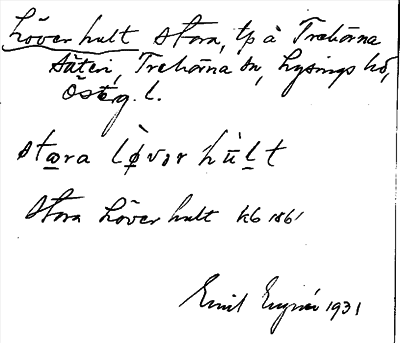 Löverhult Stora, tp å Trehörna
Säteri, Trehörna sn, Lysings hd,
Österg. l.
stɷra lø̀vər hùlt
Stora Löverhult kb 1861
Emil 1931